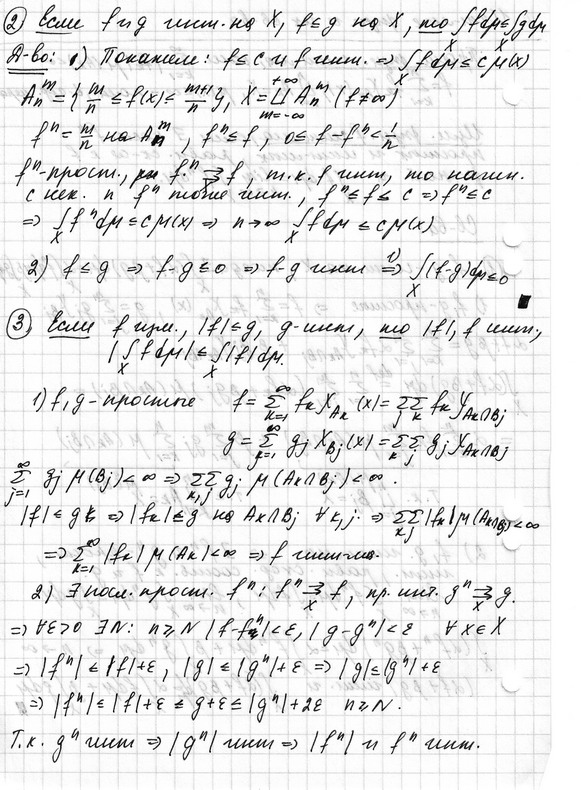 ② Если f и g инт. на X, f ≤ g на X, то ∫_X f dμ ≤ ∫_X g dμ
Д-во: 1) Покажем: f ≤ c и f инт. ⇒ ∫_X f dμ ≤ c μ(X)
A_n^m = { m/n ≤ f(x) ≤ (m+1)/n }, X = ⨆_{m=-∞}^{+∞} A_n^m (f ≠ ∞)
f^n = m/n на A_n^m, f^n ≤ f, 0 ≤ f - f^n < 1/n
f^n - прост., f^n ⇉_X f т.к. f инт, то начин.
с нек. n f^n тоже инт., f^n ≤ f ≤ c ⇒ f^n ≤ c
⇒ ∫_X f^n dμ ≤ c μ(X) ⇒ n→∞ ∫_X f dμ ≤ c μ(X)
2) f ≤ g ⇒ f-g ≤ 0 ⇒ f-g инт ⇒^{1)} ∫_X (f-g) dμ ≤ 0
③ Если f изм., |f| ≤ g, g-инт, то |f|, f инт.,
|∫_X f dμ| ≤ ∫_X |f| dμ.
1) f, g - простые f = Σ_{k=1}^∞ f_k χ_{A_k}(x) = Σ_j Σ_k f_k χ_{A_k∩B_j}
g = Σ_{j=1}^∞ g_j χ_{B_j}(x) = Σ_k Σ_j g_j χ_{A_k∩B_j}
Σ_{j=1}^∞ g_j μ(B_j) < ∞ ⇒ Σ Σ_{k,j} g_j μ(A_k∩B_j) < ∞.
|f| ≤ g ⇒ |f_k| ≤ g на A_k∩B_j ∀k,j. ⇒ Σ Σ_{k,j} |f_k| μ(A_k∩B_j) < ∞
⇒ Σ_{k=1}^∞ |f_k| μ(A_k) < ∞ ⇒ f инт-ма.
2) ∃ посл. прост. f^n: f^n ⇉_X f, пр. инт. g^n ⇉_X g.
⇒ ∀ε>0 ∃N: n ≥ N |f-f^n| < ε, |g-g^n| < ε ∀x∈X
⇒ |f^n| ≤ |f|+ε, |g| ≤ |g^n|+ε ⇒ |g| ≤ |g^n|+ε
⇒ |f^n| ≤ |f|+ε ≤ g+ε ≤ |g^n|+2ε n ≥ N.
Т.к. g^n инт ⇒ |g^n| инт ⇒ |f^n| и f^n инт.